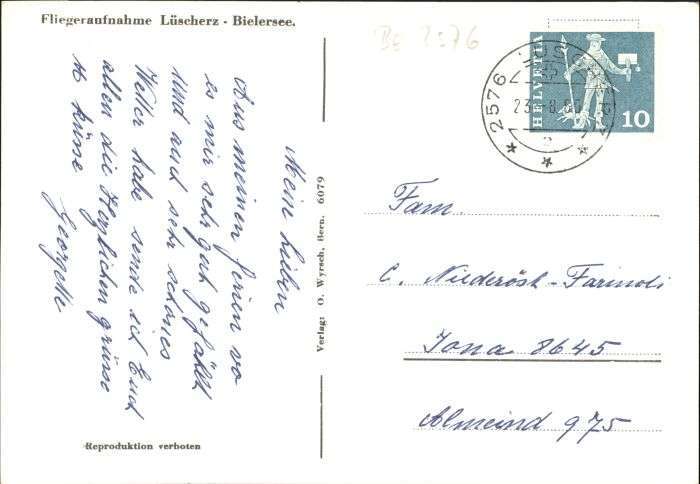 Fliegeraufnahme Lüscherz - Bielersee.
Be 2576
HELVETIA
10
2576 LÜSCHERZ
23. 8.
Meine Lieben
Aus meinen ferien wo
es mir sehr gut gefällt
und auch sehr schönes
Wetter habe sende ich Euch
allen die Herzlichen grüsse
u küsse
Georgette
Verlag: O. Wyrsch, Bern. 6079
Fam.
C. Niederöst-Farinoli
Jona 8645
Almeind 975
Reproduktion verboten